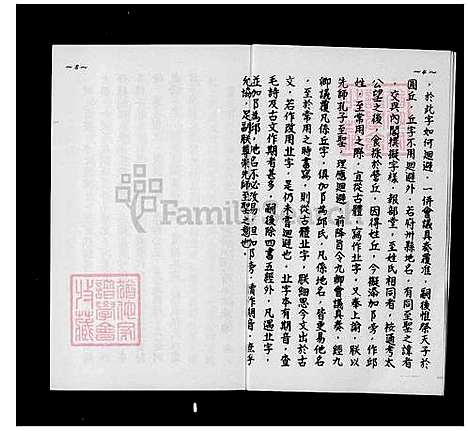 ~4~
，於此字如何迴避，一併會議具奏覆准，嗣後惟祭天子於
圜丘，丘字不用迴避外，若府州縣地名，有同至聖之諱者
，交與內閣撰擬字樣，報部堂，至姓氏相同者，按通考太
公望之後，食採於營丘，因得姓丘，今擬添加阝旁，作邱
姓，至常用之際，宜從古體，寫作丠字，又奉上諭，朕以
先師孔子至聖，理應迴避，前降旨令九卿會議具奏，經九
卿議覆凡係丘字，俱加阝為邱氏，凡係地名，皆更易他名
，至於常用之時書寫，則從古體丠字，朕細思今文出於古
文，若作改用丠字，是仍未嘗迴避也，丠字本有期音，查
毛詩及古文作期者甚多，嗣後除四書五經外，凡遇丠字，
並加阝為邱，地名不必改易，但加阝旁，讀作期音，庶乎
允協，足副朕尊崇先師至聖之意也。
~5~
FamilySearch